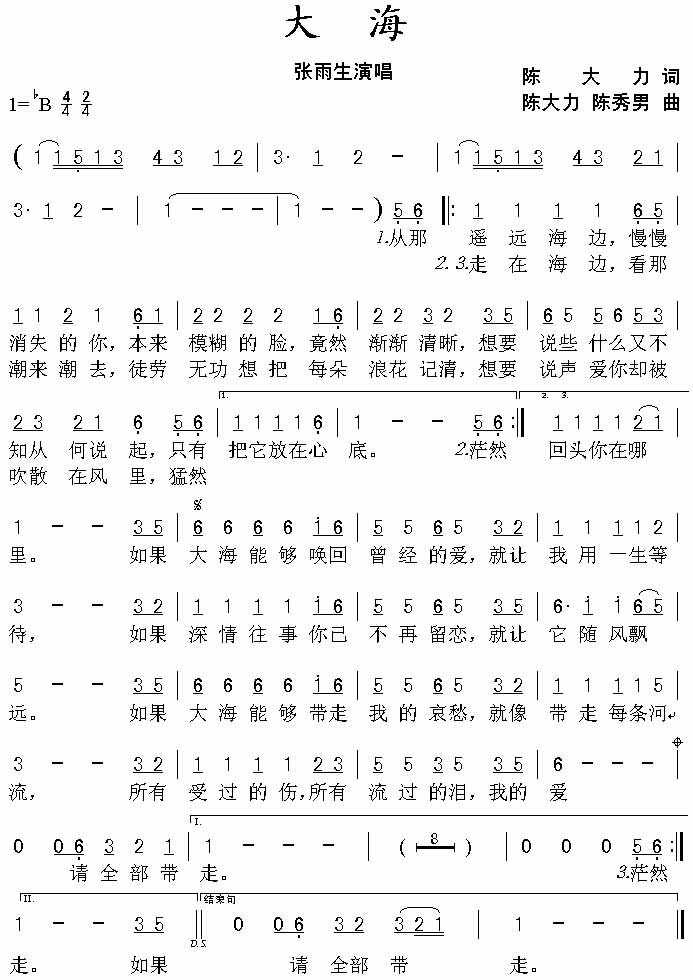 大 海
张雨生演唱
陈 大 力 词
1=♭B 4/4 2/4 陈大力 陈秀男 曲
( 1 1 5 1 3 4 3 1 2 | 3· 1 2 - | 1 1 5 1 3 4 3 2 1 |
3· 1 2 - | 1 - - | 1 - - ) 5 6 ‖: 1 1 1 1 6 5 |
1.从那 遥 远 海 边，慢慢
2.3.走 在 海 边，看那
1 1 2 1 6 1 | 2 2 2 2 1 6 | 2 2 3 2 3 5 | 6 5 5 6 5 3 |
消失 的 你，本来 模糊 的 脸，竟然 渐渐 清晰，想要 说些 什么 又不
潮来 潮 去，徒劳 无功 想 把 每朵 浪花 记清，想要 说声 爱你 却被
1. 2. 3.
2 3 2 1 6 5 6 | 1 1 1 1 6 | 1 - - 5 6 :‖ 1 1 1 1 2 1 |
知从 何说 起，只有 把它放在心 底。 2.茫然 回头你在哪
吹散 在风 里，猛然
1 - - 3 5 | 6 6 6 6 i 6 | 5 5 6 5 3 2 | 1 1 1 1 2 |
里。 如果 大 海 能 够 唤回 曾 经 的 爱，就让 我 用 一生等
3 - - 3 2 | 1 1 1 1 i 6 | 5 5 6 5 3 5 | 6· i i 6 5 |
待， 如果 深 情 往 事 你已 不 再 留 恋，就让 它 随 风飘
5 - - 3 5 | 6 6 6 6 i 6 | 5 5 6 5 3 5 | 1 1 1 1 5 |
远。 如果 大 海 能 够 带走 我 的 哀愁，就像 带 走 每条河
3 - - 3 2 | 1 1 1 1 2 3 | 5 5 3 5 3 5 | 6 - - - |
流， 所有 受 过 的 伤，所有 流 过 的泪，我的 爱
I.
0 0 6 3 2 1 | 1 - - - | ( 8 ) | 0 0 0 5 6 :‖
请 全 部 带 走。 3.茫然
II. 结束句
1 - - 3 5 ‖ 0 0 0 6 3 2 3 2 1 | 1 - - - ‖
D.S.
走。 如果 请 全部 带 走。